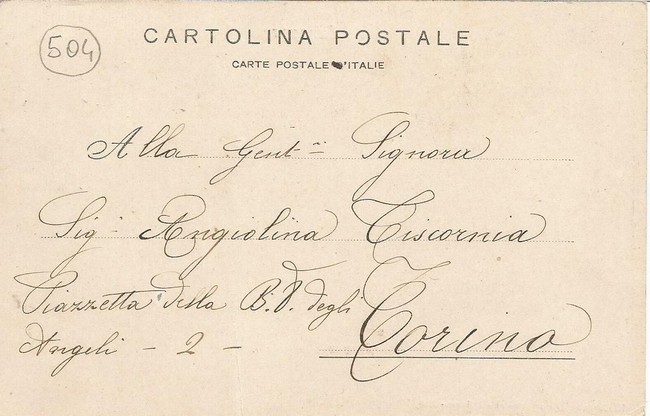 504
CARTOLINA POSTALE
CARTE POSTALE D'ITALIE
Alla Gent.ma Signora
Sig.ª Angiolina Tiscornia
Piazzetta della B. V. degli
Angeli - 2 -
Torino